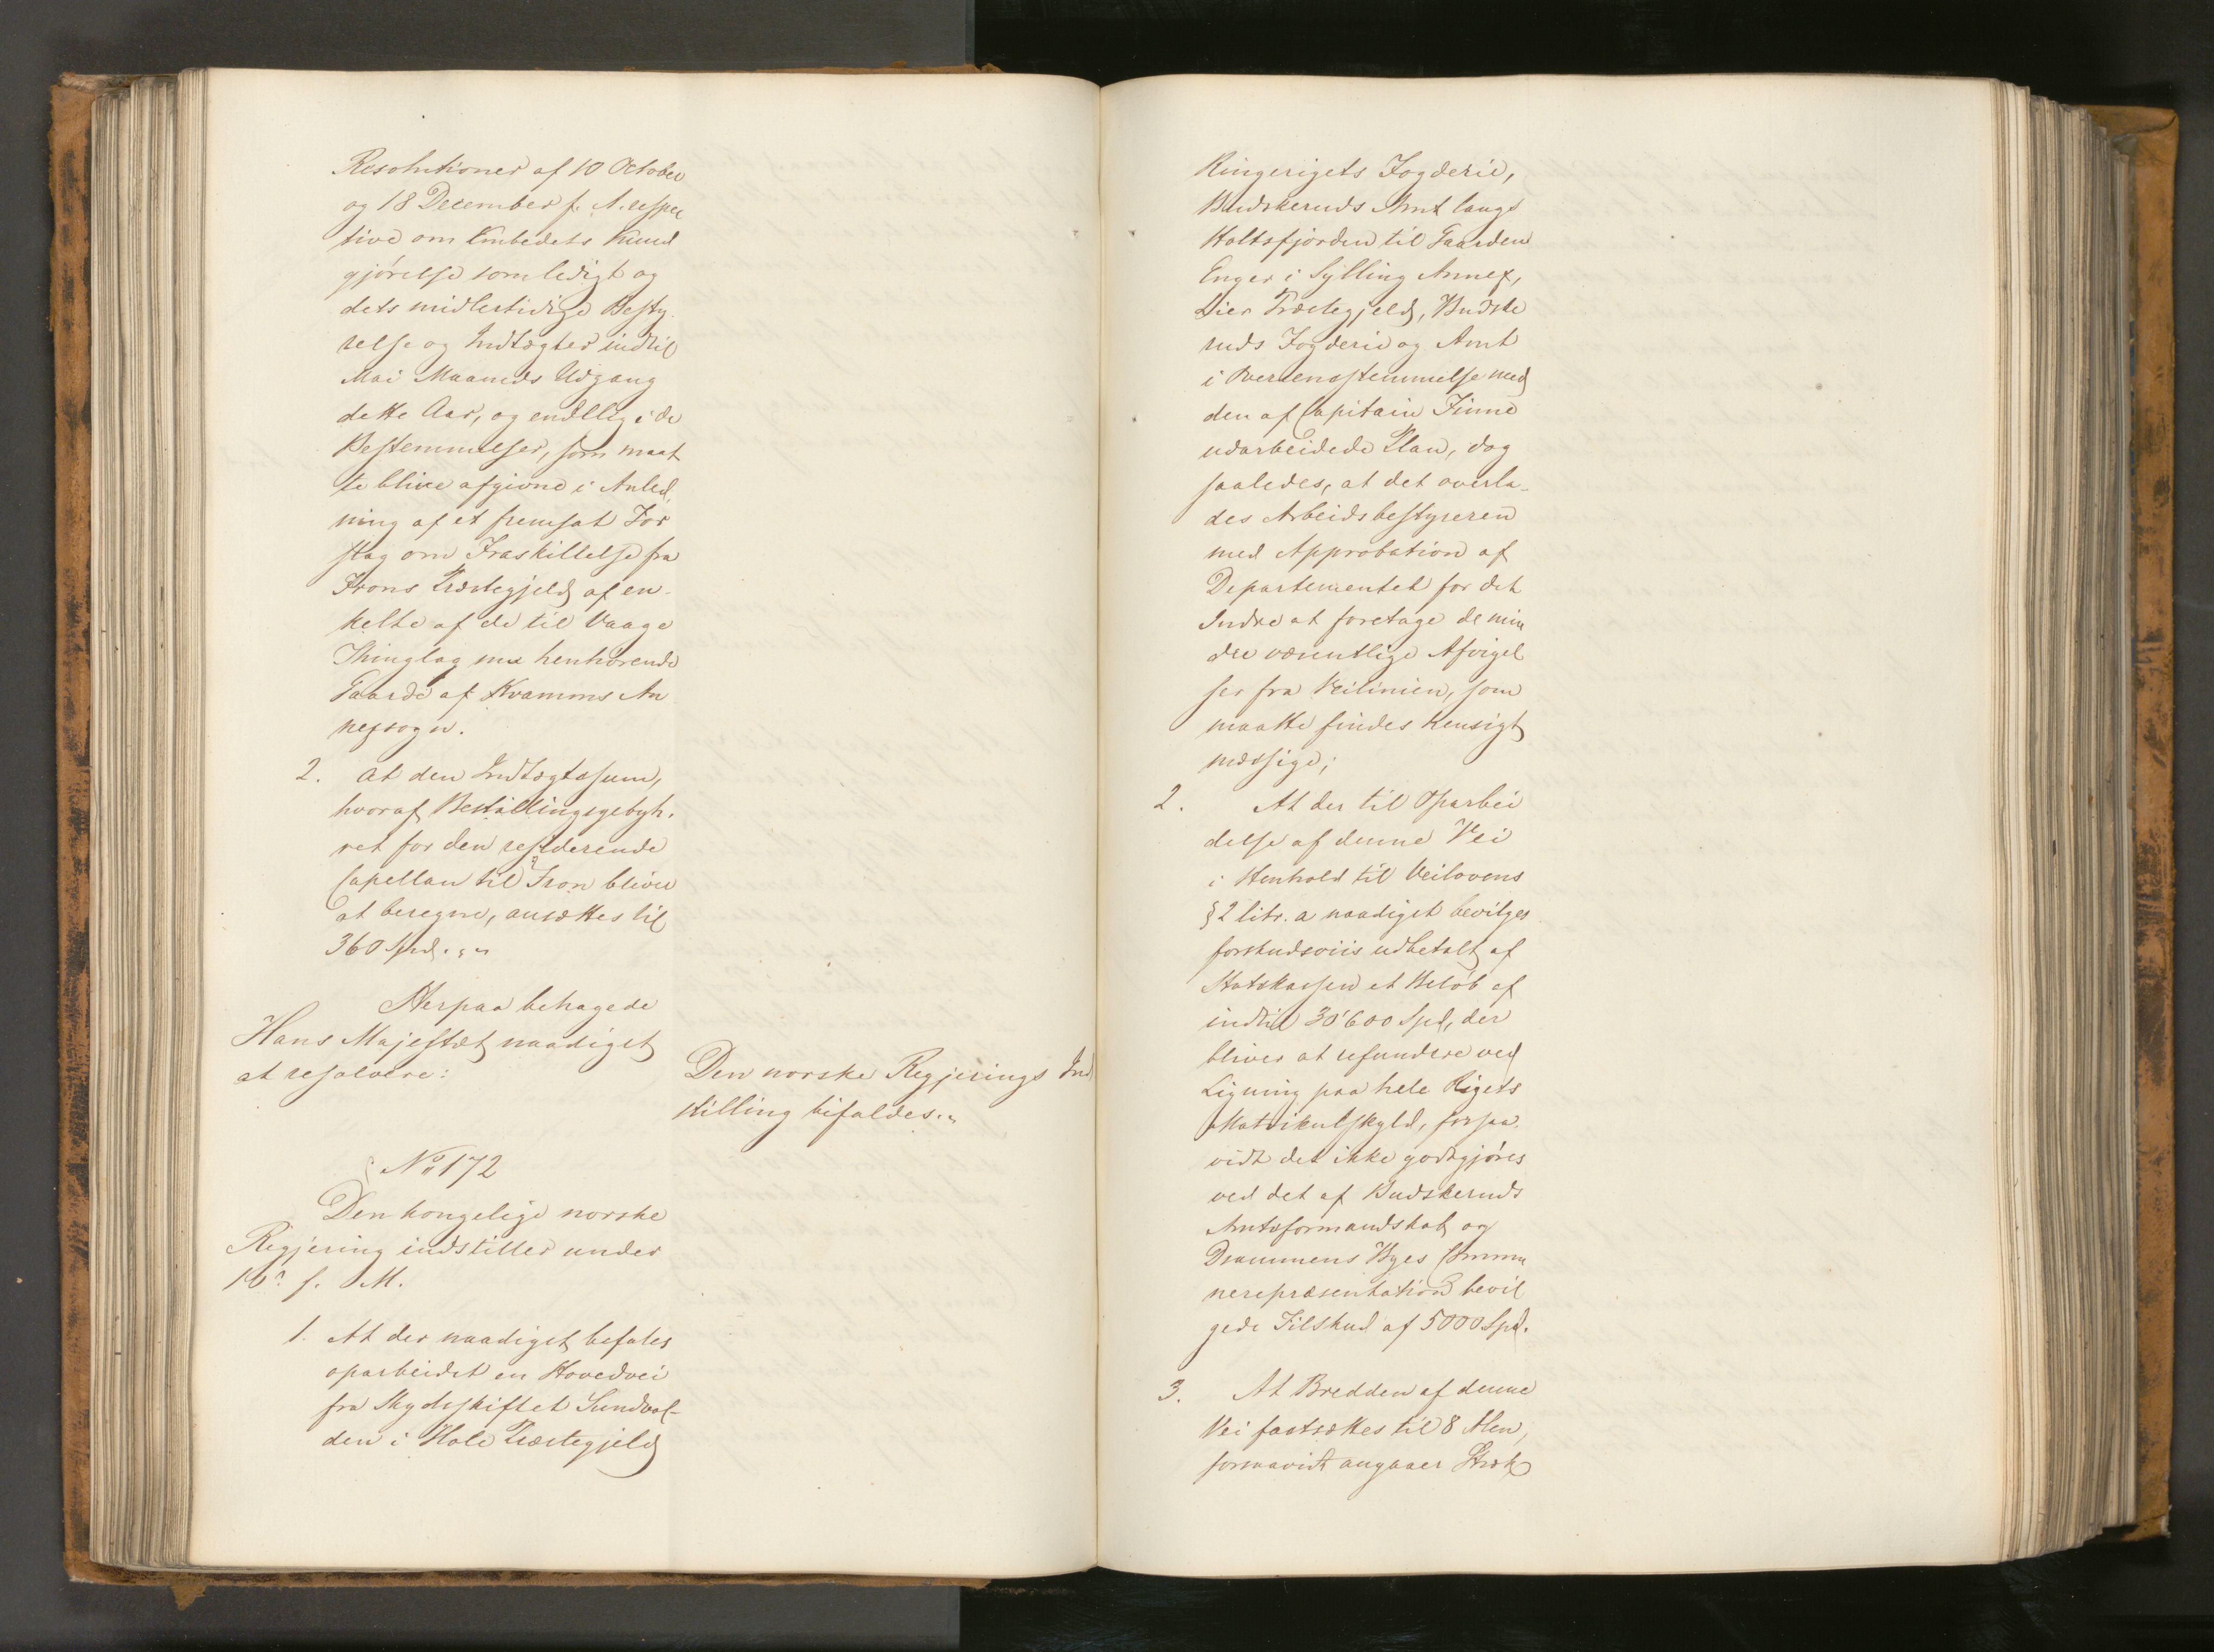 Resolutioner af 10 October
og 18 December f. A. respec
tive om Embedets Kund
gjørelse som ledigt og
dets midlertidige Besty-
relse og Indtægter indtil
Mai Maaneds Udgang
dette Aar, og endelig i de
Bestemmelser, som maat
te blive afgivne i Anled-
ning af et fremsat For
slag om Fraskillelse fra
Frons Præstegjeld af en-
kelte af de til Vaage
Thinglag nu henhørende
Gaarde af Kvamms An
nexsogn.
2. at den Indtægtssum,
hvoraf Bestallingsgebyh-
ret for den residerende
Capellan til Fron bliver
at beregne, ansættes til
360 Spd.
Herpaa behagede
Hans Majestæt naadigst
at resolvere:
Den norske Regjerings Ind
stilling bifaldes.
No 172
Den kongelige norske
Regjering indstiller under
16de f. M.
1. At der naadigst befales
oparbeidet en Hovedvei
fra Skydsskiftet Sundvol-
den i Hole Præstegjeld
Ringerigets Fogderie,
Buskeruds Amt langs
Holtsfjorden til Gaarden
Enger i Sylling Annex,
Lier Præstegjeld, Buske
ruds Fogderie og Amt
i Overensstemmelse med
den af Capitain Finne
udarbeidede Plan, dog
saaledes, at det overla-
des Arbeidsbestyreren
med Approbation af
Departementet for det
Indre at foretage de min
dre væsentlige Afvigel
ser fra Veilinien, som
maatte findes hensigt
mæssige;
2. At der til Oparbei
delse af denne Vei
i Henhold til Veilovens
§ 2 litr. a naadigst bevilges
forskudsviis udbetalt af
Statskassen et Beløb af
indtil 30'600 Spd, der
bliver at refundere ved
Ligning paa hele Rigets
Matrikulskyld, forsaa-
vidt det ikke godtgjøres
ved det af Budskeruds
Amtsformandskab og
Drammens Byes Commu
nerepræsentation bevil
gede Tilskud af 5000 Spd.
3. At Bredden af denne
Vei fastsættes til 8 Alen,
forsaavidt angaaer Stræk